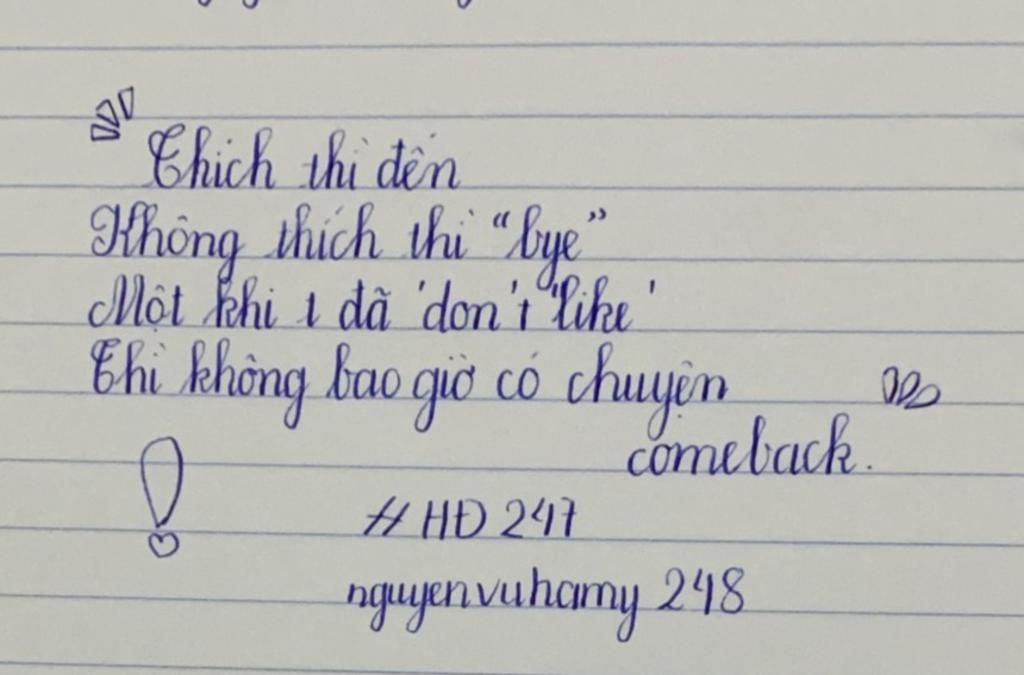 Thích thì đến
Không thích thì "bye"
Một khi t đã 'don't like'
Thì không bao giờ có chuyện
comeback.
# HĐ 247
nguyenvuhamy 248